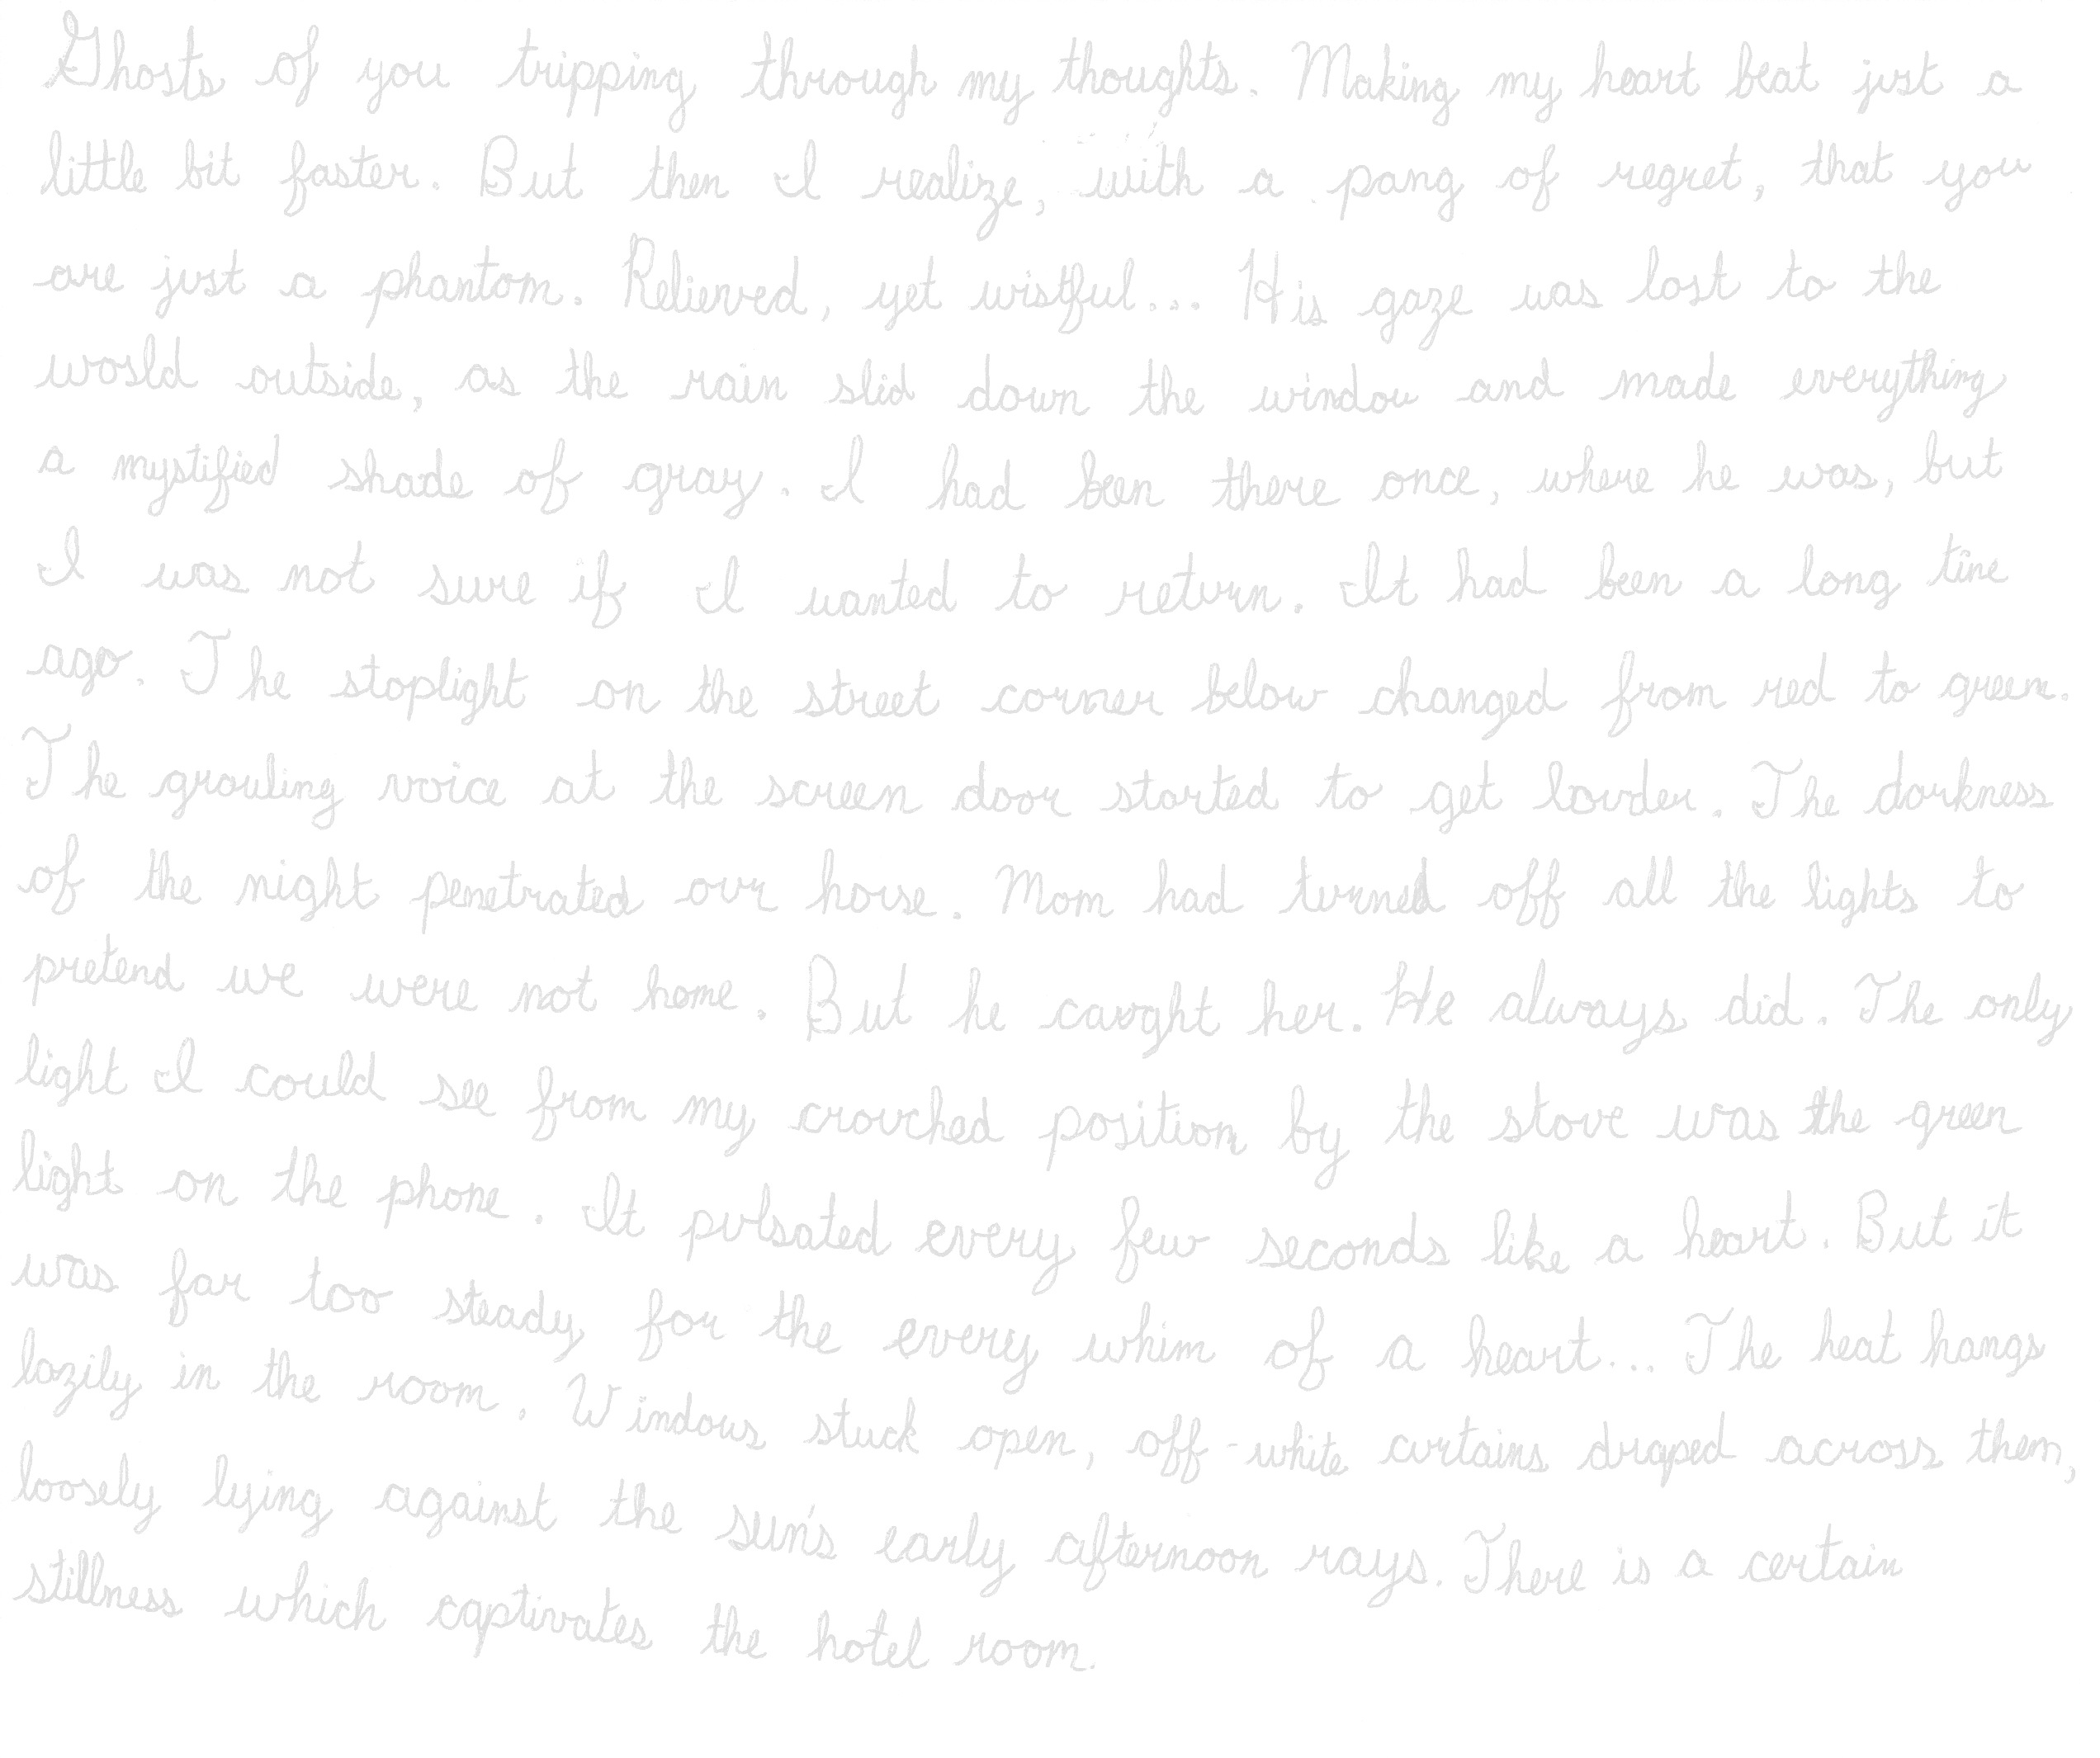 Ghosts of you tripping through my thoughts. Making my heart beat just a
little bit faster. But then I realize, with a pang of regret, that you
are just a phantom. Relieved, yet wistful... His gaze was lost to the
world outside, as the rain slid down the window and made everything
a mystified shade of gray. I had been there once, where he was, but
I was not sure if I wanted to return. It had been a long time
ago. The stoplight on the street corner below changed from red to green.
The growling voice at the screen door started to get louder. The darkness
of the night penetrated our house. Mom had turned off all the lights to
pretend we were not home. But he caught her. He always did. The only
light I could see from my crouched position by the stove was the green
light on the phone. It pulsated every few seconds like a heart. But it
was far too steady for the every whim of a heart... The heat hangs
lazily in the room. Windows stuck open, off-white curtains draped across them,
loosely lying against the sun's early afternoon rays. There is a certain
stillness which captivates the hotel room.